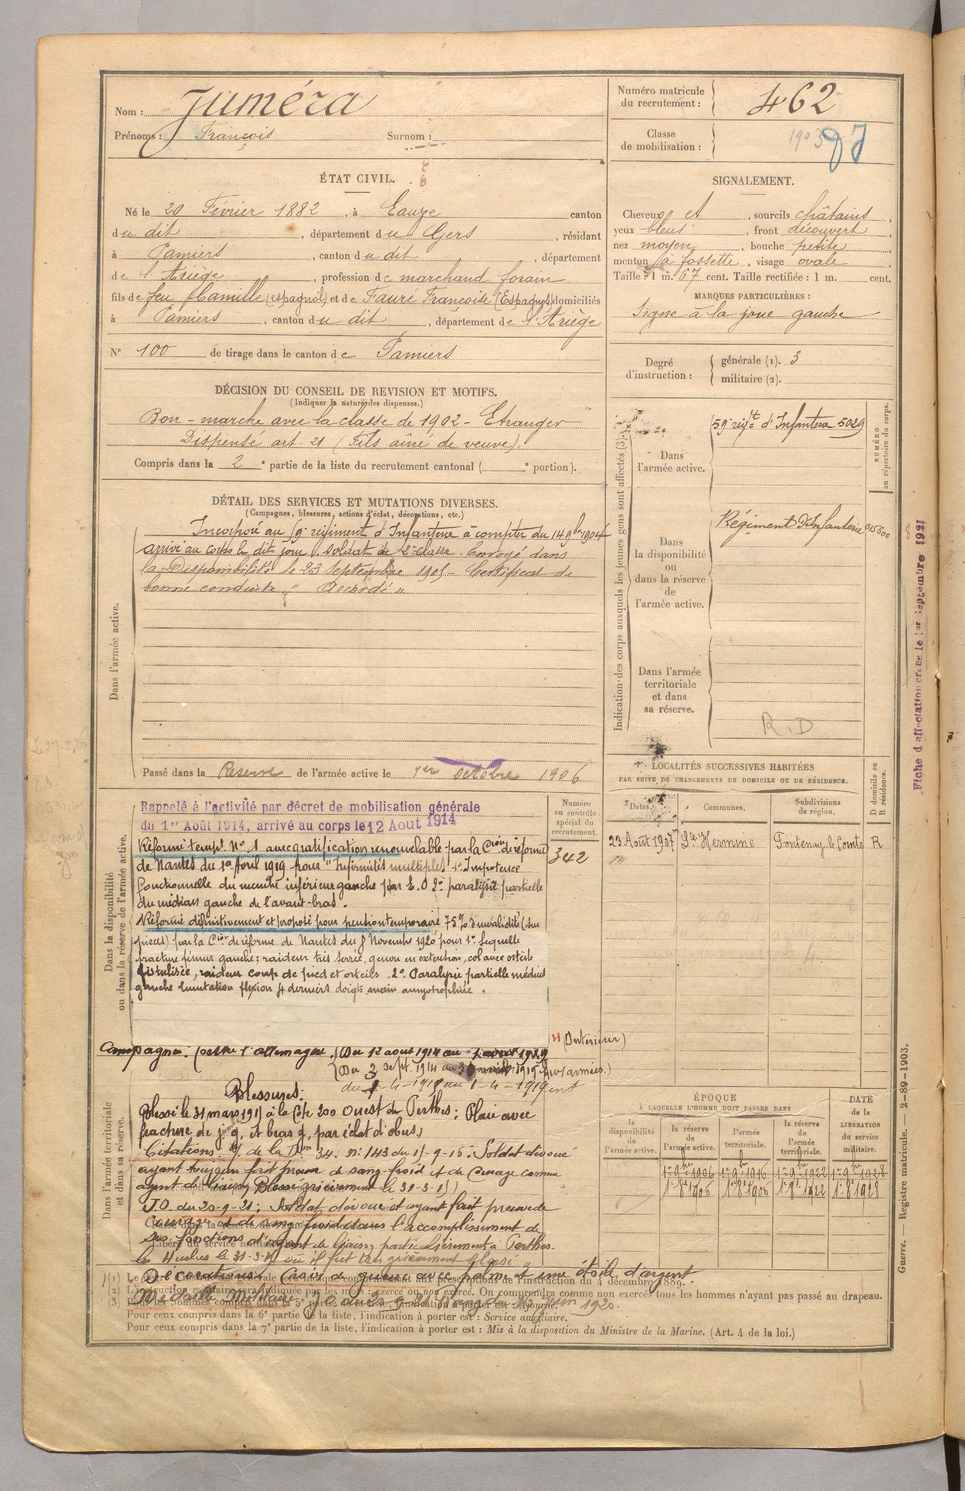 Nom : Juméra
Prénoms : François Surnom :
ÉTAT CIVIL.
Né le 20 Février 1882, à Eauze canton
du dit, département du Gers, résidant
à Pamiers, canton du dit, département
de l'Ariège, profession de marchand forain
fils de feu Camille (espagnol) et de Faure Françoise (Espagnols) domiciliés
à Pamiers, canton du dit, département de l'Ariège
N° 100 de tirage dans le canton de Pamiers
DÉCISION DU CONSEIL DE REVISION ET MOTIFS.
(Indiquer la nature des dispenses.)
Bon - marche avec la classe de 1902 - Etranger
Dispensé art. 21 (Fils aîné de veuve)
Compris dans la 2e partie de la liste du recrutement cantonal ( e portion).
DÉTAIL DES SERVICES ET MUTATIONS DIVERSES.
(Campagnes, blessures, actions d'éclat, décorations, etc.)
Dans l'armée active.
Incorporé au 59 régiment d'Infanterie à compter du 14 9bre 1904
arrivé au corps le dit jour, soldat de 2e classe. Envoyé dans
la Disponibilité le 23 Septembre 1905 - Certificat de
bonne conduite " Accordé "
Passé dans la Réserve de l'armée active le 1er octobre 1906
Dans la disponibilité
ou dans la réserve de l'armée active.
Rappelé à l'activité par décret de mobilisation générale
du 1er Août 1914, arrivé au corps le 12 Aout 1914
Réformé tempre N° 1 avec gratification renouvelable par la Cion de réforme
de Nantes du 1er Avril 1919 pour "Infirmités multiples" 1° Impotence
fonctionnelle du membre inférieure gauche par E.O 2° paralysie partielle
du médian gauche de l'avant-bras.
Réformé définitivement et proposé pour pension temporaire 75% d'invalidité (sur
pièces) par la Cion de réforme de Nantes du 8 Novembre 1920 pour 1° Sequelle
fracture fémur gauche; raideur très serrée, genou en extention, col avec ostéite
fistulisée, raideur coup de pied et orteils. 2° Paralysie partielle médian
gauche limitation flexion 4 derniers doigts main amyotrophiée.
Numéro
au contrôle
spécial du
recrutement.
342
Campagne : Contre l'allemagne. (Du 12 aout 1914 au 1 avril 1919
(Intérieur)
(Du 3 sept. 1914 au 30 1915 (aux armées.)
du 1-4-1915 au 1-4-1919 int
Dans l'armée territoriale
et dans sa réserve.
Blessures.
Blessé le 31 mars 1915 à la Côte 200 Ouest de Perthes; Plaie avec
fracture de j. g. et bras g. par éclat d'obus.
Citations O/ de la Don 34. N° 143 du 15-9-16 : Soldat dévoué
ayant toujours fait preuve de sang-froid et de courage comme
agent de liaison. Blessé grièvement le 31-3-15
J.O. du 20-9-21 : Soldat dévoué et ayant fait preuve de
courage et de sang froid dans l'accomplissement de
ses fonctions d'agent de liaison particulièrement à Perthes
les Hurlus le 31-3-15 où il fut très grièvement blessé
Décorations : Croix de guerre avec palme et une étoile d'argent
Médaille Militaire.
Pour ceux compris dans la 6e partie de la liste, l'indication à porter est : Service auxiliaire.
Pour ceux compris dans la 7e partie de la liste, l'indication à porter est : Mis à la disposition du Ministre de la Marine. (Art. 4 de la loi.)
Numéro matricule
du recrutement : 462
Classe
de mobilisation : 1903
SIGNALEMENT.
Cheveux et, sourcils châtains,
yeux bleus, front découvert,
nez moyen, bouche petite,
menton à fossette, visage ovale.
Taille : 1 m. 67 cent. Taille rectifiée : 1 m. cent.
MARQUES PARTICULIÈRES :
Signe à la joue gauche
Degré
d'instruction :
générale (1). 3
militaire (2).
Indication des corps auxquels les jeunes gens sont affectés (3).
NUMÉRO
au répertoire du corps.
Dans
l'armée active.
59e régt d'Infanterie 5029
Dans
la disponibilité
ou
dans la réserve
de
l'armée active.
Régiment d'Infanterie
Dans l'armée
territoriale
et dans
sa réserve.
R.D
LOCALITÉS SUCCESSIVES HABITÉES
PAR SUITE DE CHANGEMENTS DE DOMICILE OU DE RÉSIDENCE.
Dates. Communes. Subdivisions
de région.
D domicile ou
R résidence.
29 Août 1907 Ste Hermine Fontenay le Comte R
ÉPOQUE
À LAQUELLE L'HOMME DOIT PASSER DANS
DATE
de la
LIBÉRATION
du service
militaire.
la
disponibilité
de
l'armée active.
la réserve
de
l'armée active.
l'armée
territoriale.
la réserve
de
l'armée
territoriale.
Fiche d'affectation créée le 1er septembre 1921
Guerre. - Registre matricule. 2-89-1903.